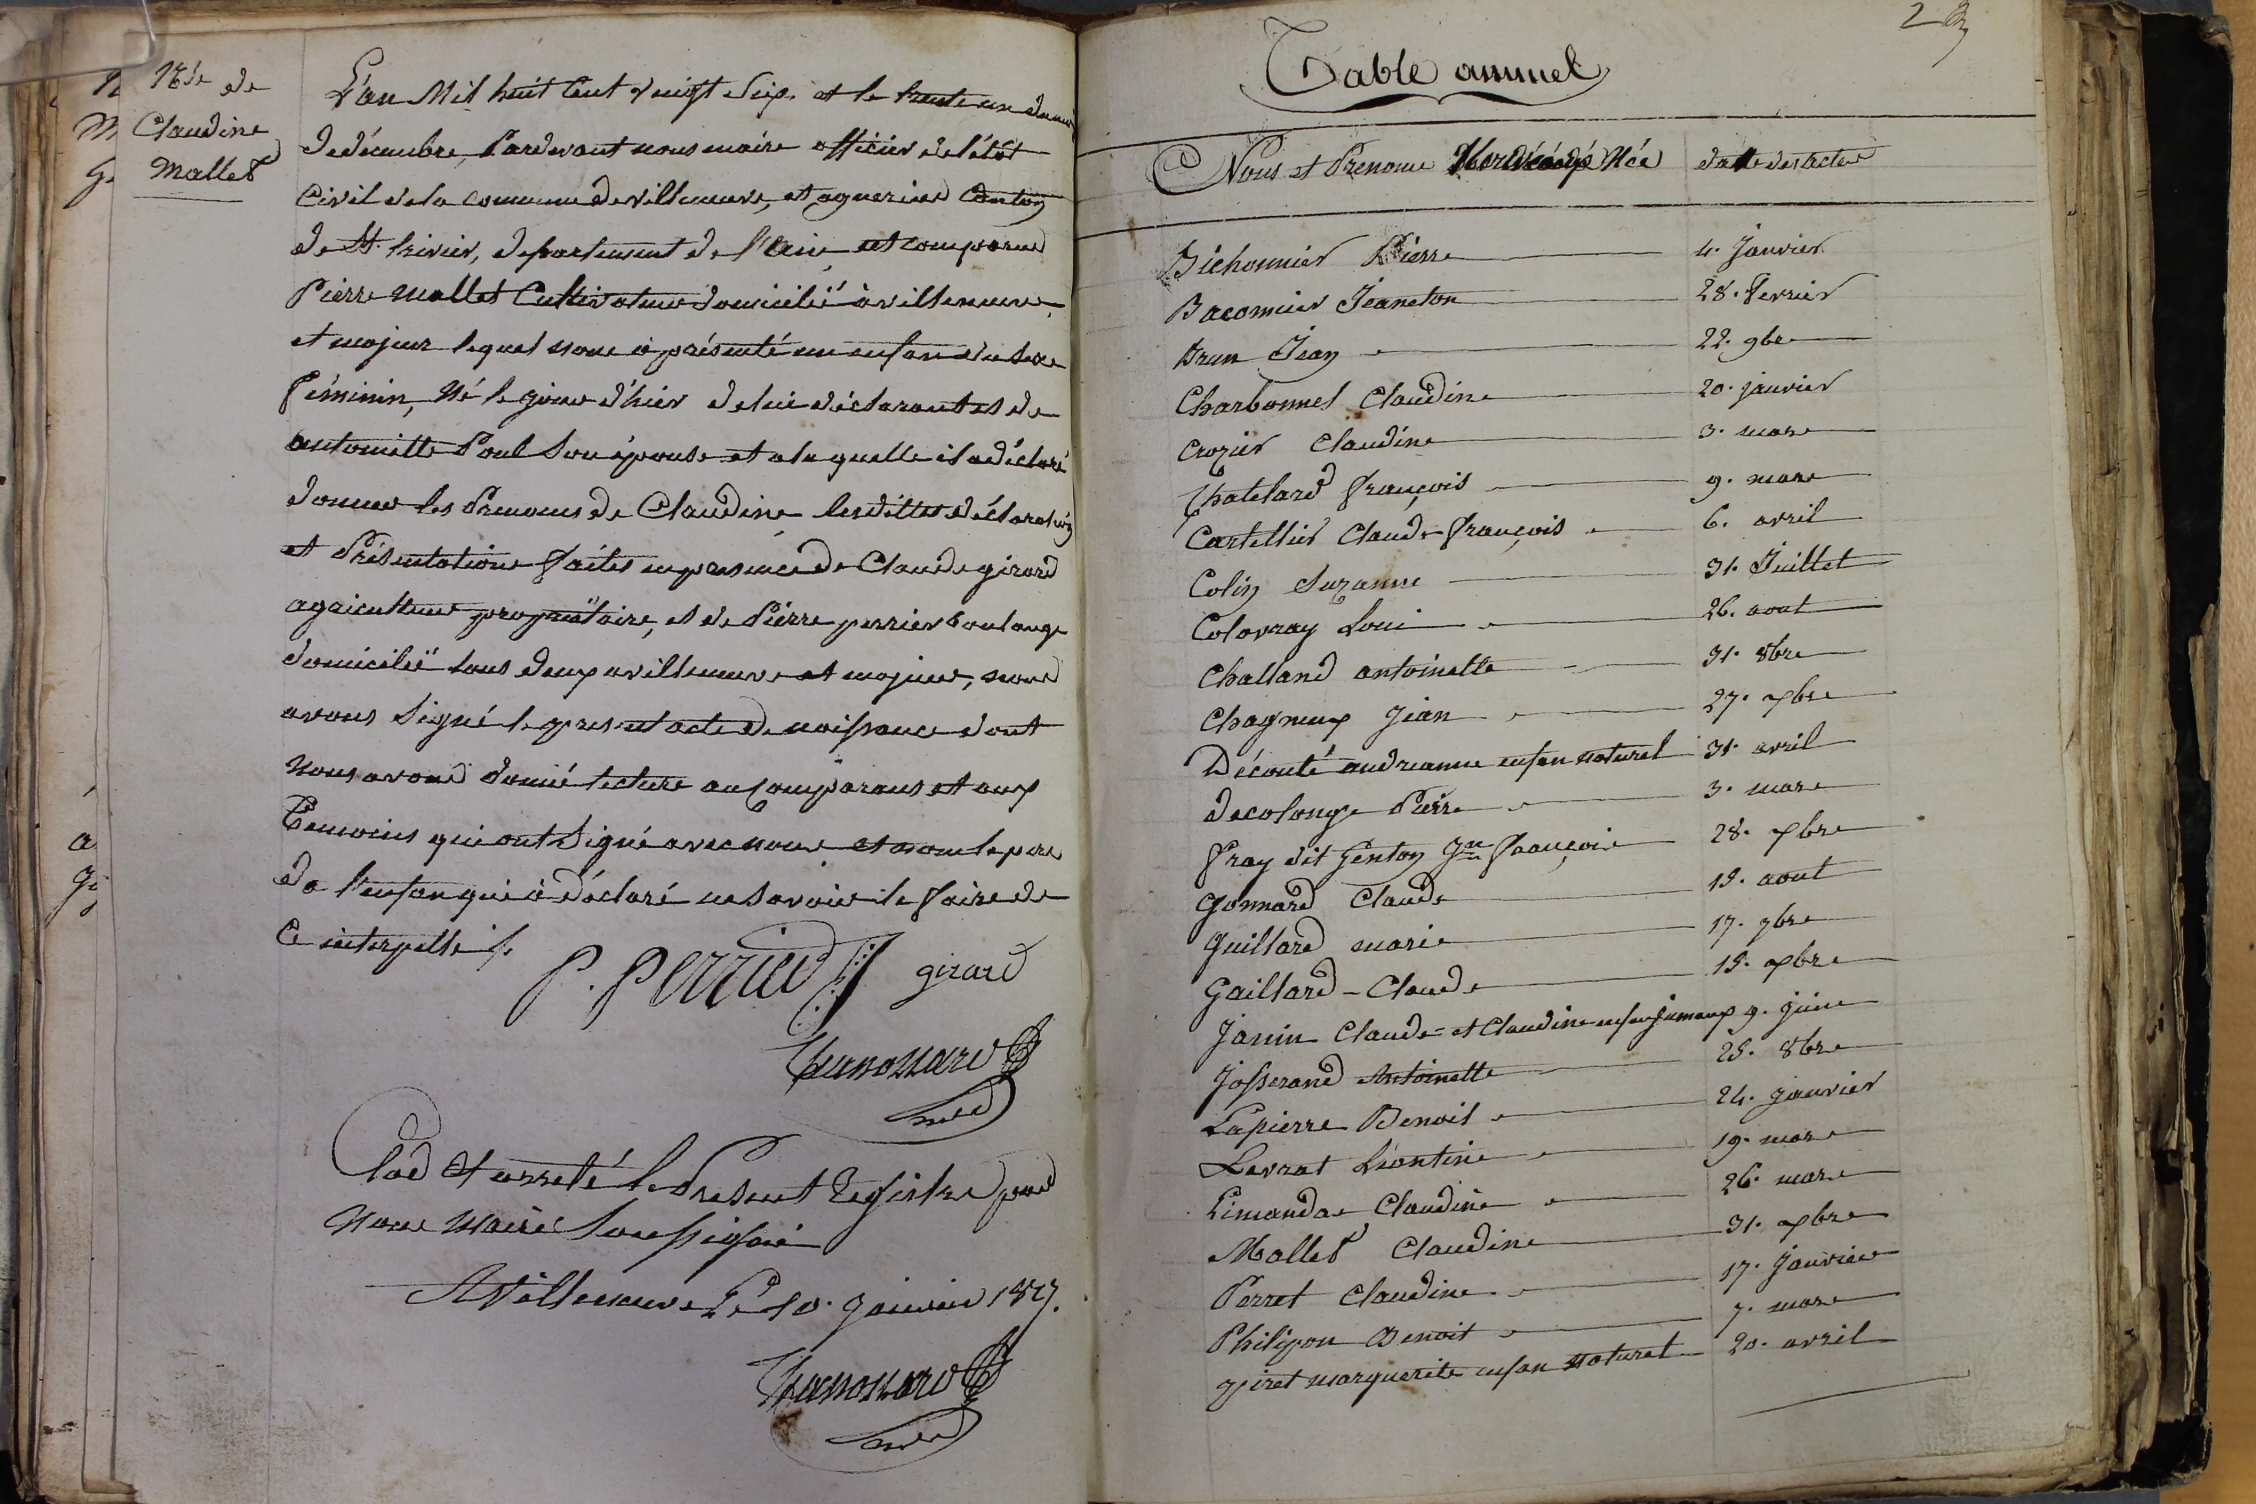 Née de
Claudine
Mallet
L'an Mil huit Cent vingt Six. et le trente un du mois
de décembre, Pardevant nous maire officier de l'état
Civil de la commune de villeneuve, et agnerins Canton
de St. trivier, departement de l'ain, est comparu
Pierre Mallet Cultivateur domicilié à villeneuve
et majeur lequel nous à présenté un enfan du Sexe
féminin, Né le jour d'hier de lui déclarant et de
antoinette Poul Son épouse et a la quelle il a déclaré
donner les Prenoms de Claudine lesdittes déclaration
et Présentations faites en presence de Claude girard
agriculteur propriétaire, et de Pierre perrier boulange
domicilié tous deux a villeneuve et majeur, nous
avons Signé le present acte de naissance dont
Nous avons donné lecture au Comparans et aux
Temoins qui ont Signé avec nous et non le pere
de l'enfan qui à déclaré ne savoir le faire de
Ce interpellé
P. Perrier girard
Clos et arreté le Present Registre par
Nous Maire Soussigné
A Villeneuve Le 10. Janvier 1827.
2
Table annuel
Noms et Prenoms Née date des actes
Bichonnier Pierre 4. Janvier
Baconnier Jeaneton 28. fevrier
Brun Jean 22. 9bre
Charbonnet Claudine 20. janvier
Crozier Claudine 3. mars
Chatelard François 9. mars
Cartellier Claude François 6. avril
Colin Suzanne 31. Juillet
Colovray Loui 26. aout
Challand antoinette 31. 8bre
Chagneux Jean 27. xbre
Découté andreanne enfan naturel 31. avril
Decolonge Pierre 3. mars
Fray dit Genton Jn François 28. xbre
Gonnard Claude 15. aout
Guillard marie 17. 9bre
Gaillard - Claude 15. xbre
Janin Claude et Claudine enfan jumeaux 9. juin
Josserand Antoinette 25. 8bre
Lapierre Benoit 24. janvier
Levrat Léontine 19. mars
Limandas Claudine 26. mars
Mallet Claudine 31. xbre
Perret Claudine 17. Janvier
Philipon Benoit 7. mars
piret marguerite enfan naturel 20. avril